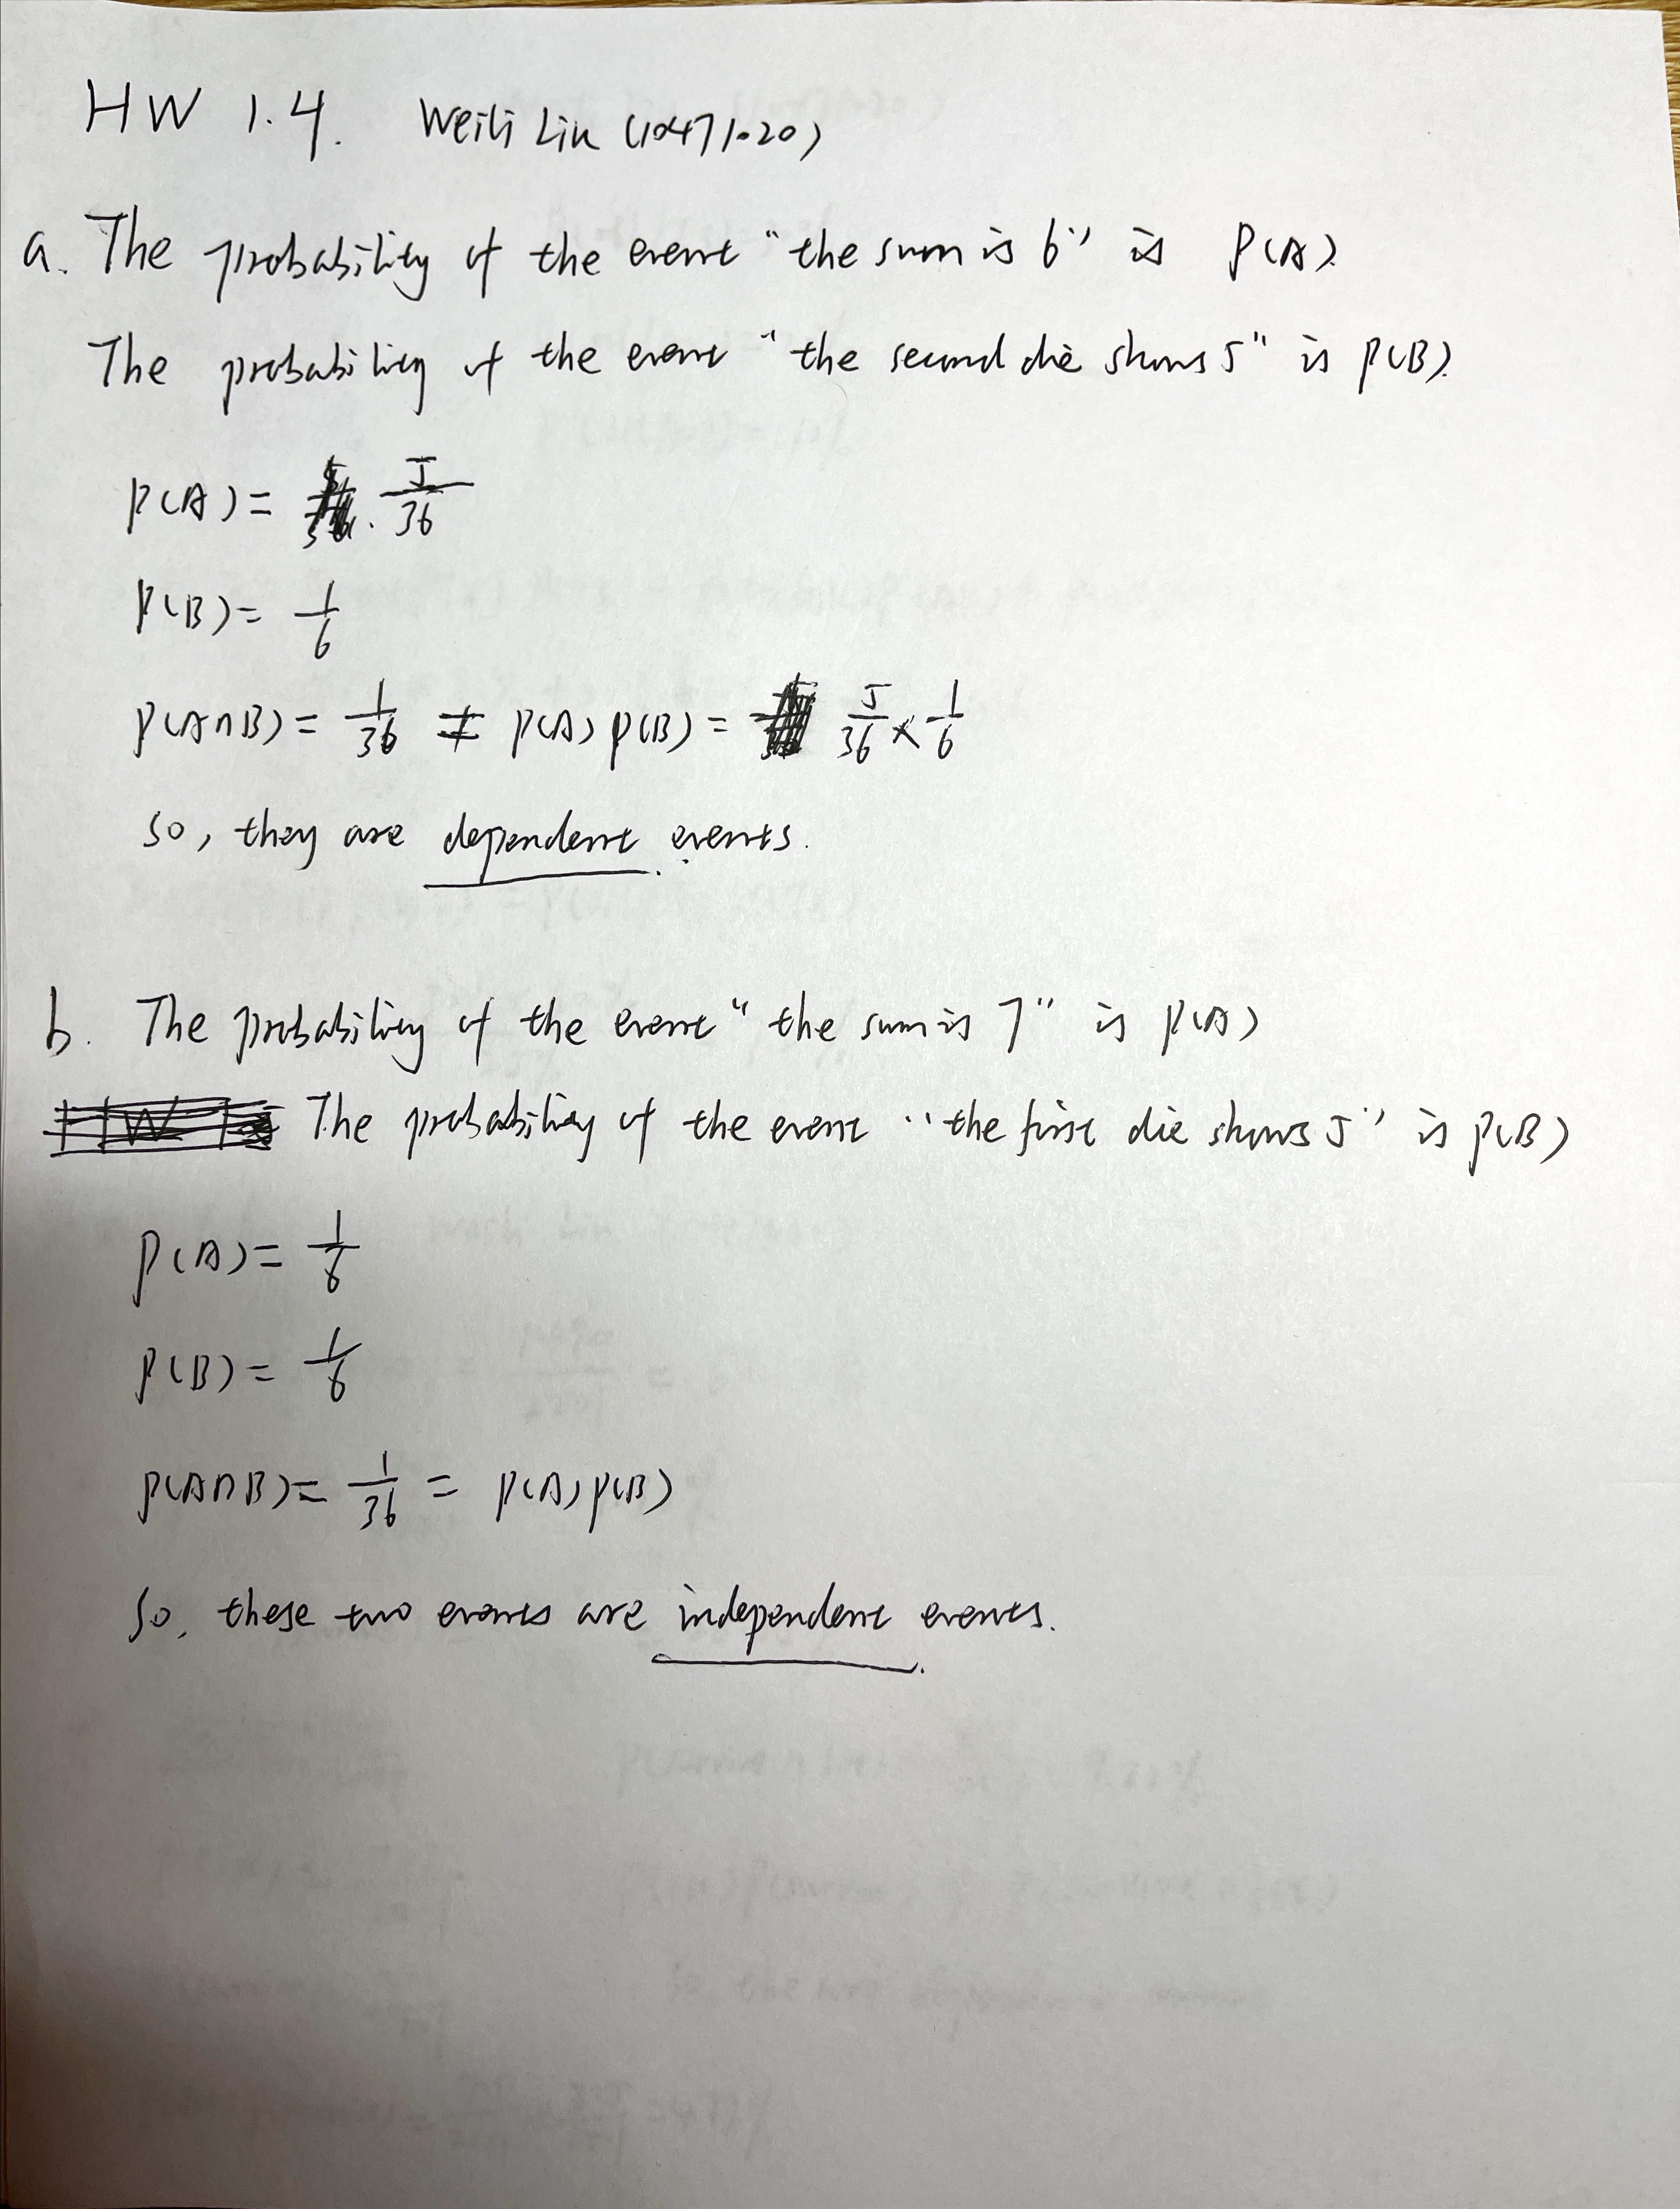 HW 1.4. Weili Liu (10471020)
a. The probability of the event "the sum is 6" is P(A).
The probability of the event "the second die shows 5" is P(B).
P(A) = 5/36
P(B) = 1/6
P(A∩B) = 1/36 ≠ P(A) P(B) = 5/36 × 1/6
So, they are dependent events.
b. The probability of the event "the sum is 7" is P(A)
The probability of the event "the first die shows 5" is P(B)
P(A) = 1/6
P(B) = 1/6
P(A∩B) = 1/36 = P(A) P(B)
So, these two events are independent events.